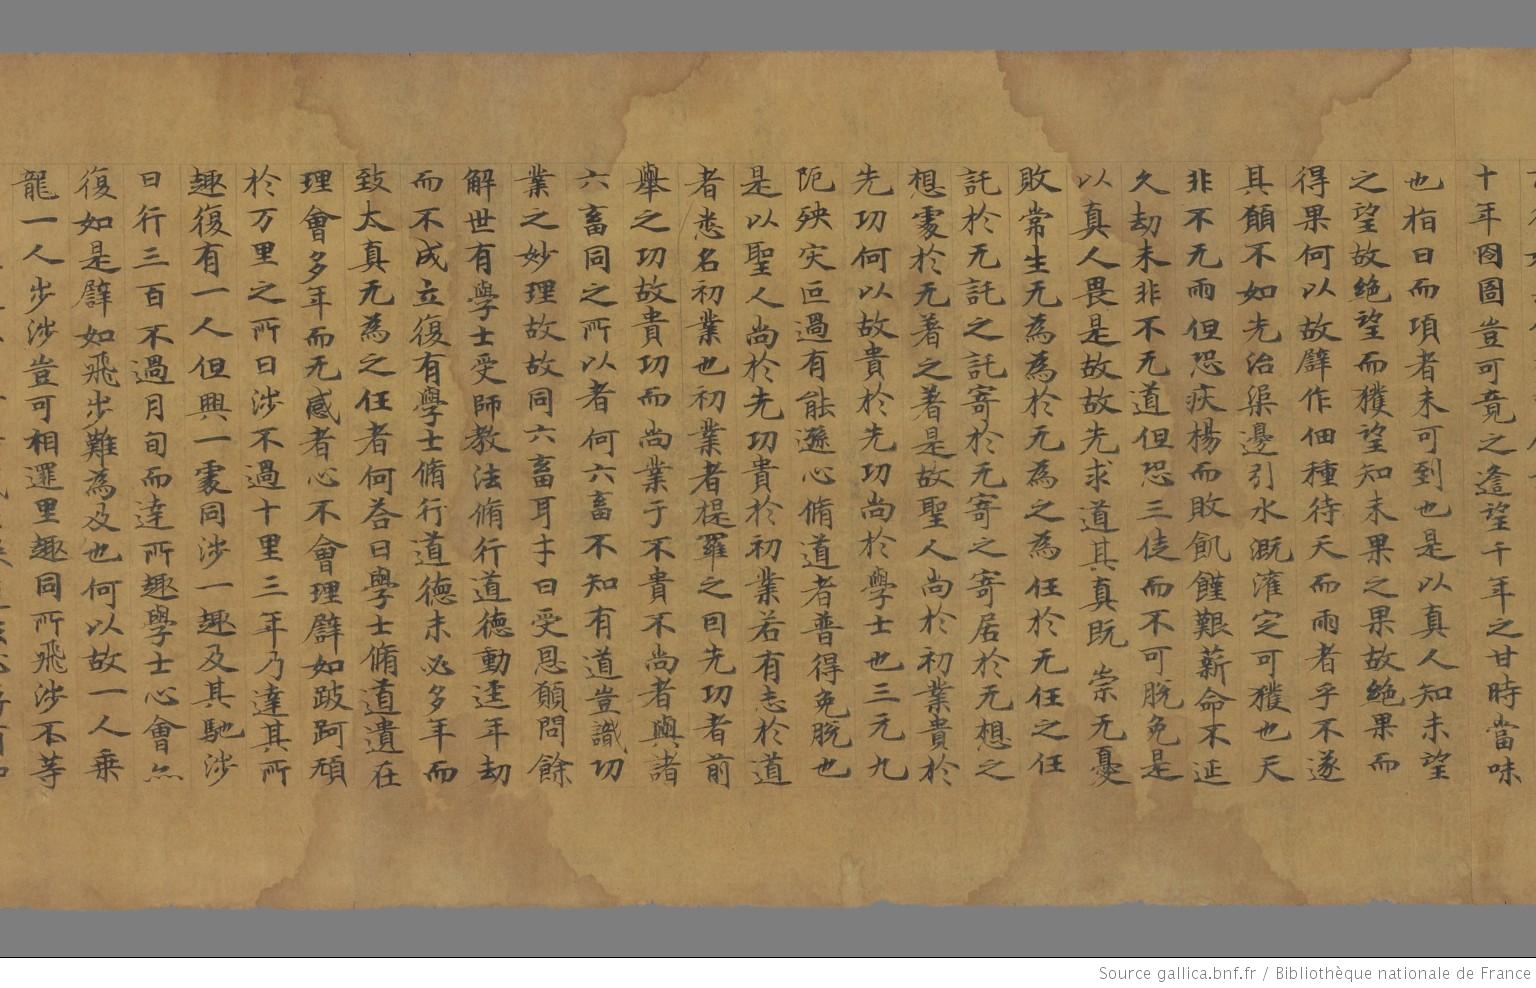 十年囹圄豈可竟之逢望千年之甘時當味
也指日而項者未可到也是以真人知未望
之望故絶望而獲望知未果之果故絶果而
得果何以故譬作佃種待天而雨者乎不遂
其願不如先治渠邊引水溉灌定可獲也天
非不无雨但恐疾楊而敗飢饉艱薪命不延
久劫未非不无道但恐三徒而不可脫免是
以真人畏是故故先求道其真既崇无憂
敗常生无為為於无為之為任於无任之任
託於无託之託寄於无寄之寄居於无想之
想處於无著之著是故聖人尚於初業貴於
先功何以故貴於先功尚於學士也三元九
阨殃灾叵過有能遜心脩道者普得免脫也
是以聖人尚於先功貴於初業若有志於道
者悉名初業也初業者提羅之囙先功者前
舉之功故貴功而尚業于不貴不尚者與諸
六畜同之所以者何六畜不知有道豈識功
業之妙理故故同六畜耳才曰受恩願問餘
解世有學士受師教法脩行道德動逕年劫
而不成立復有學士脩行道德未必多年而
致太真无為之任者何答曰學士脩道遺在
理會多年而无感者心不會理譬如跛跒頑
於万里之所日涉不過十里三年乃達其所
趣復有一人但興一處同涉一趣及其馳涉
日行三百不過月旬而達所趣學士心會亦
復如是譬如飛步難為及也何以故一人乗
龍一人步涉豈可相遝里趣同所飛涉不等